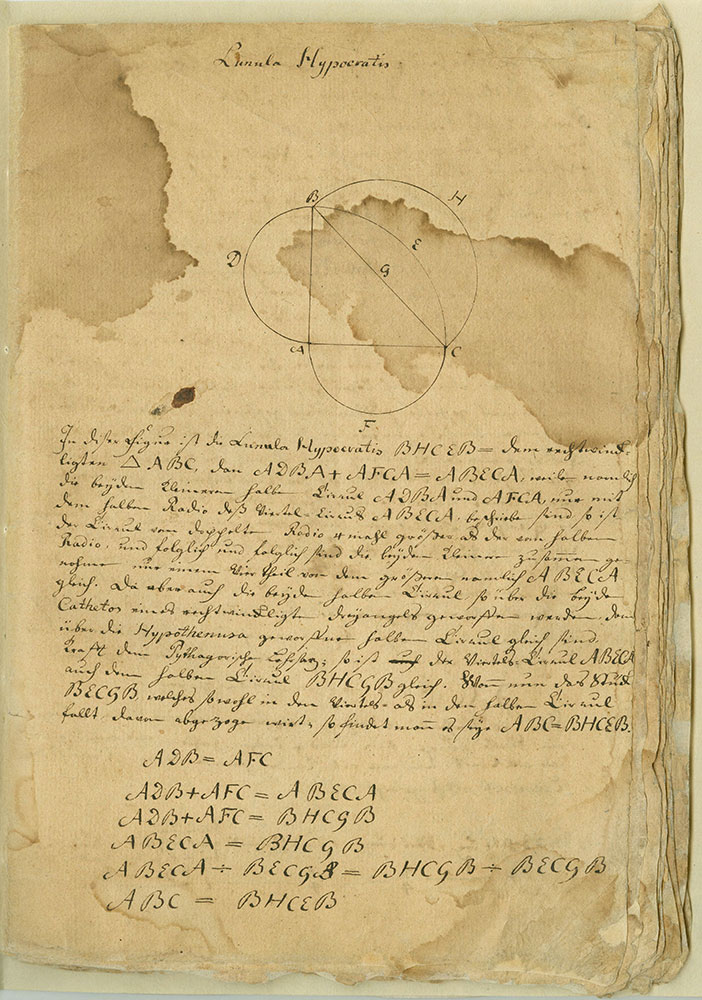 Lunula Hypocratis
B
H
D
E
G
A
C
F
In diser Figur ist die Lunula Hypocratis BHCEB = dem rechtwink-
ligten △ ABC, dan ADBA + AFCA = ABECA, weilen nemlich
die beyden kleineren halbe Circul ADBA und AFCA, nur mit
dem halben Radio deß Viertel-Circuls ABECA, beschriebe sind, so ist
der Circul vom doppelten Radio 4 mahl größer als der vom halben
Radio, und folglich und folglich sind die beyden kleinere zusammen ge-
nohme nur einem Viertheil von dem größeren nemlich ABECA
gleich. Da aber auch die beyde halben Circul so über die beyde
Cathetos eines rechtwinkligten dreyangels geworffen werden, dem
über die Hypothenusa geworffne halben Circul gleich sind,
Krafft dem Pythagorische Lehrsaz; so ist der Viertels-Circul ABECA
auch dem halben Circul BHCGB gleich. Wann nun das Stuck
BECGB, welches sowohl in den Viertels- als in den halben Circul
fallt, davon abgezoge wird, so findet man es seye ABC = BHCEB.
ADB = AFC
ADB + AFC = ABECA
ADB + AFC = BHCGB
ABECA = BHCGB
ABECA ÷ BECGB = BHCGB ÷ BECGB
ABC = BHCEB